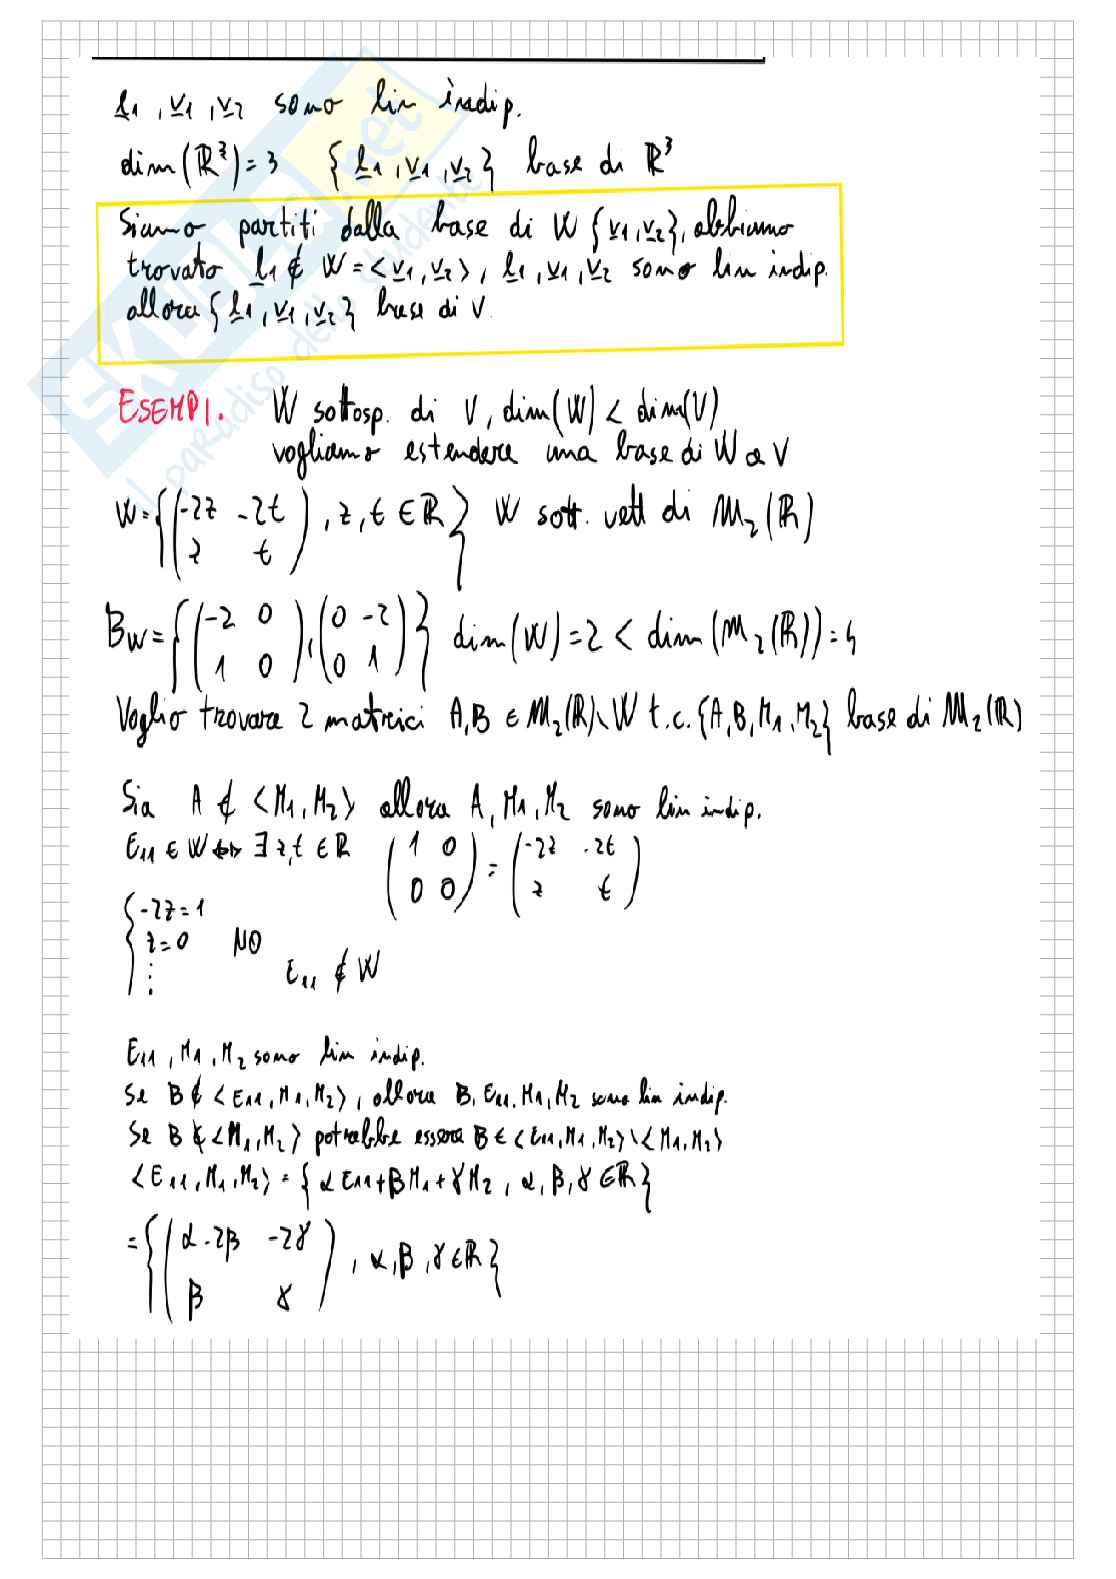 e1, v1, v2 sono lin indip.
dim(ℝ³)=3 {e1, v1, v2} base di ℝ³
Siamo partiti dalla base di W {v1, v2}, abbiamo
trovato e1 ∉ W = <v1, v2>, e1, v1, v2 sono lin indip.
allora {e1, v1, v2} base di V.
ESEMPI. W sottosp. di V, dim(W) < dim(V)
vogliamo estendere una base di W a V
W = {(-2z -2t; z t), z, t ∈ ℝ} W sott. vett di M₂(ℝ)
B_W = {(-2 0; 1 0), (0 -2; 0 1)} dim(W)=2 < dim(M₂(ℝ))=4
Voglio trovare 2 matrici A,B ∈ M₂(ℝ)\W t.c. {A,B,M₁,M₂} base di M₂(ℝ)
Sia A ∉ <M₁, M₂> allora A, M₁, M₂ sono lin indip.
E₁₁ ∈ W ⇔ ∃ z,t ∈ ℝ (1 0; 0 0) = (-2z -2t; z t)
{-2z=1
z=0 NO
⋮ E₁₁ ∉ W
E₁₁, M₁, M₂ sono lin indip.
Se B ∉ <E₁₁, M₁, M₂>, allora B, E₁₁, M₁, M₂ sono lin indip.
Se B ∉ <M₁, M₂> potrebbe essere B ∈ <E₁₁, M₁, M₂>\<M₁, M₂>
<E₁₁, M₁, M₂> = {αE₁₁+βM₁+γM₂, α, β, γ ∈ ℝ}
= {(α-2β -2γ; β γ), α, β, γ ∈ ℝ}
SKUOLA.net
il paradiso dello studente